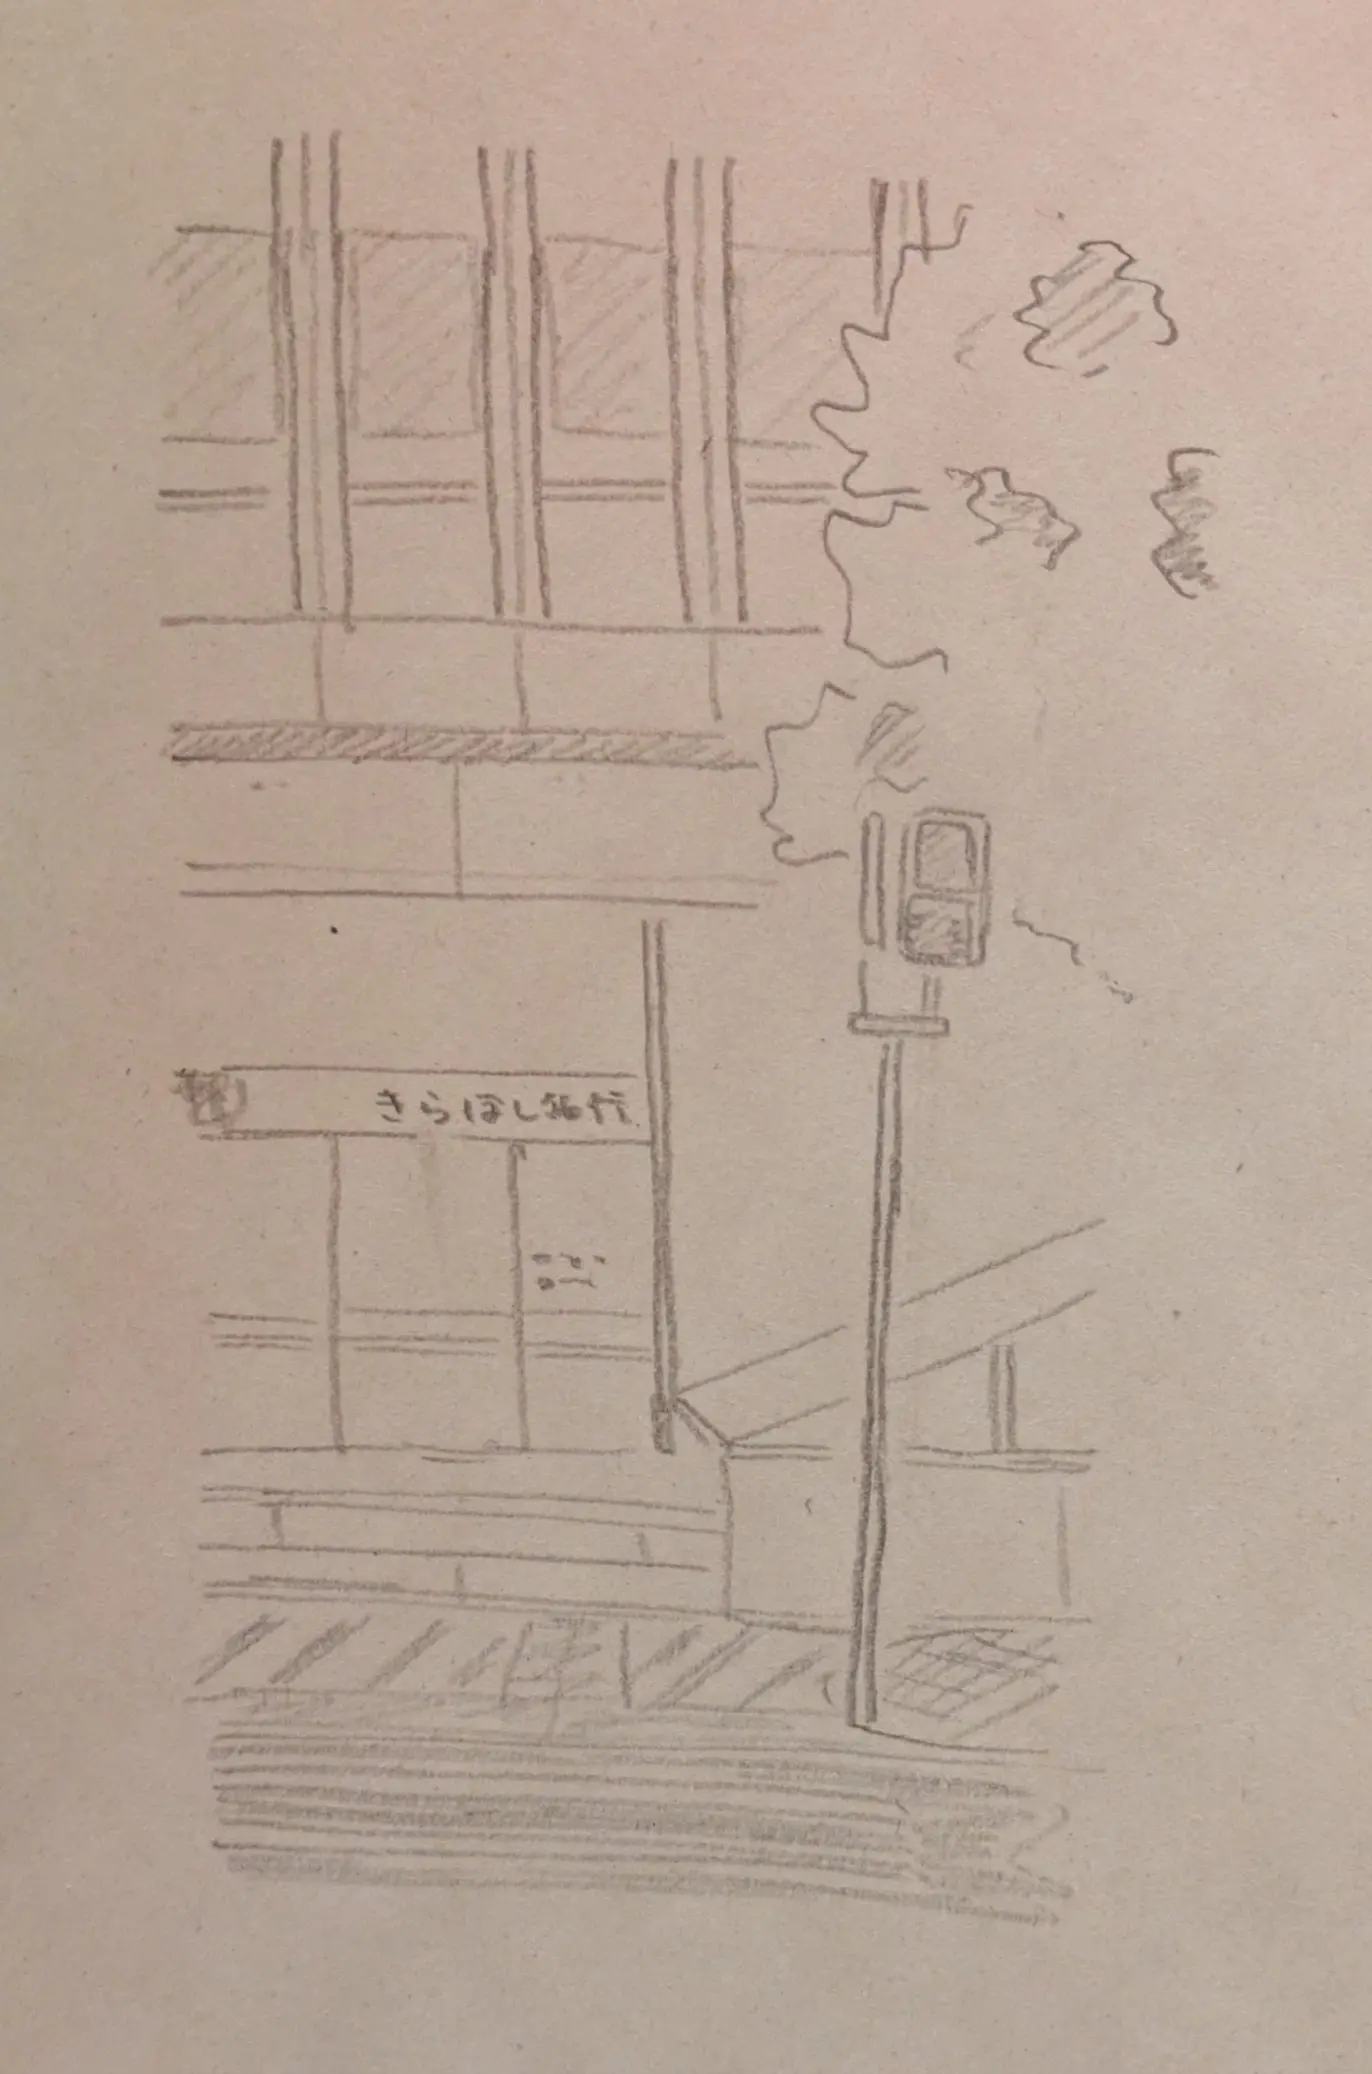 きらぼし銀行